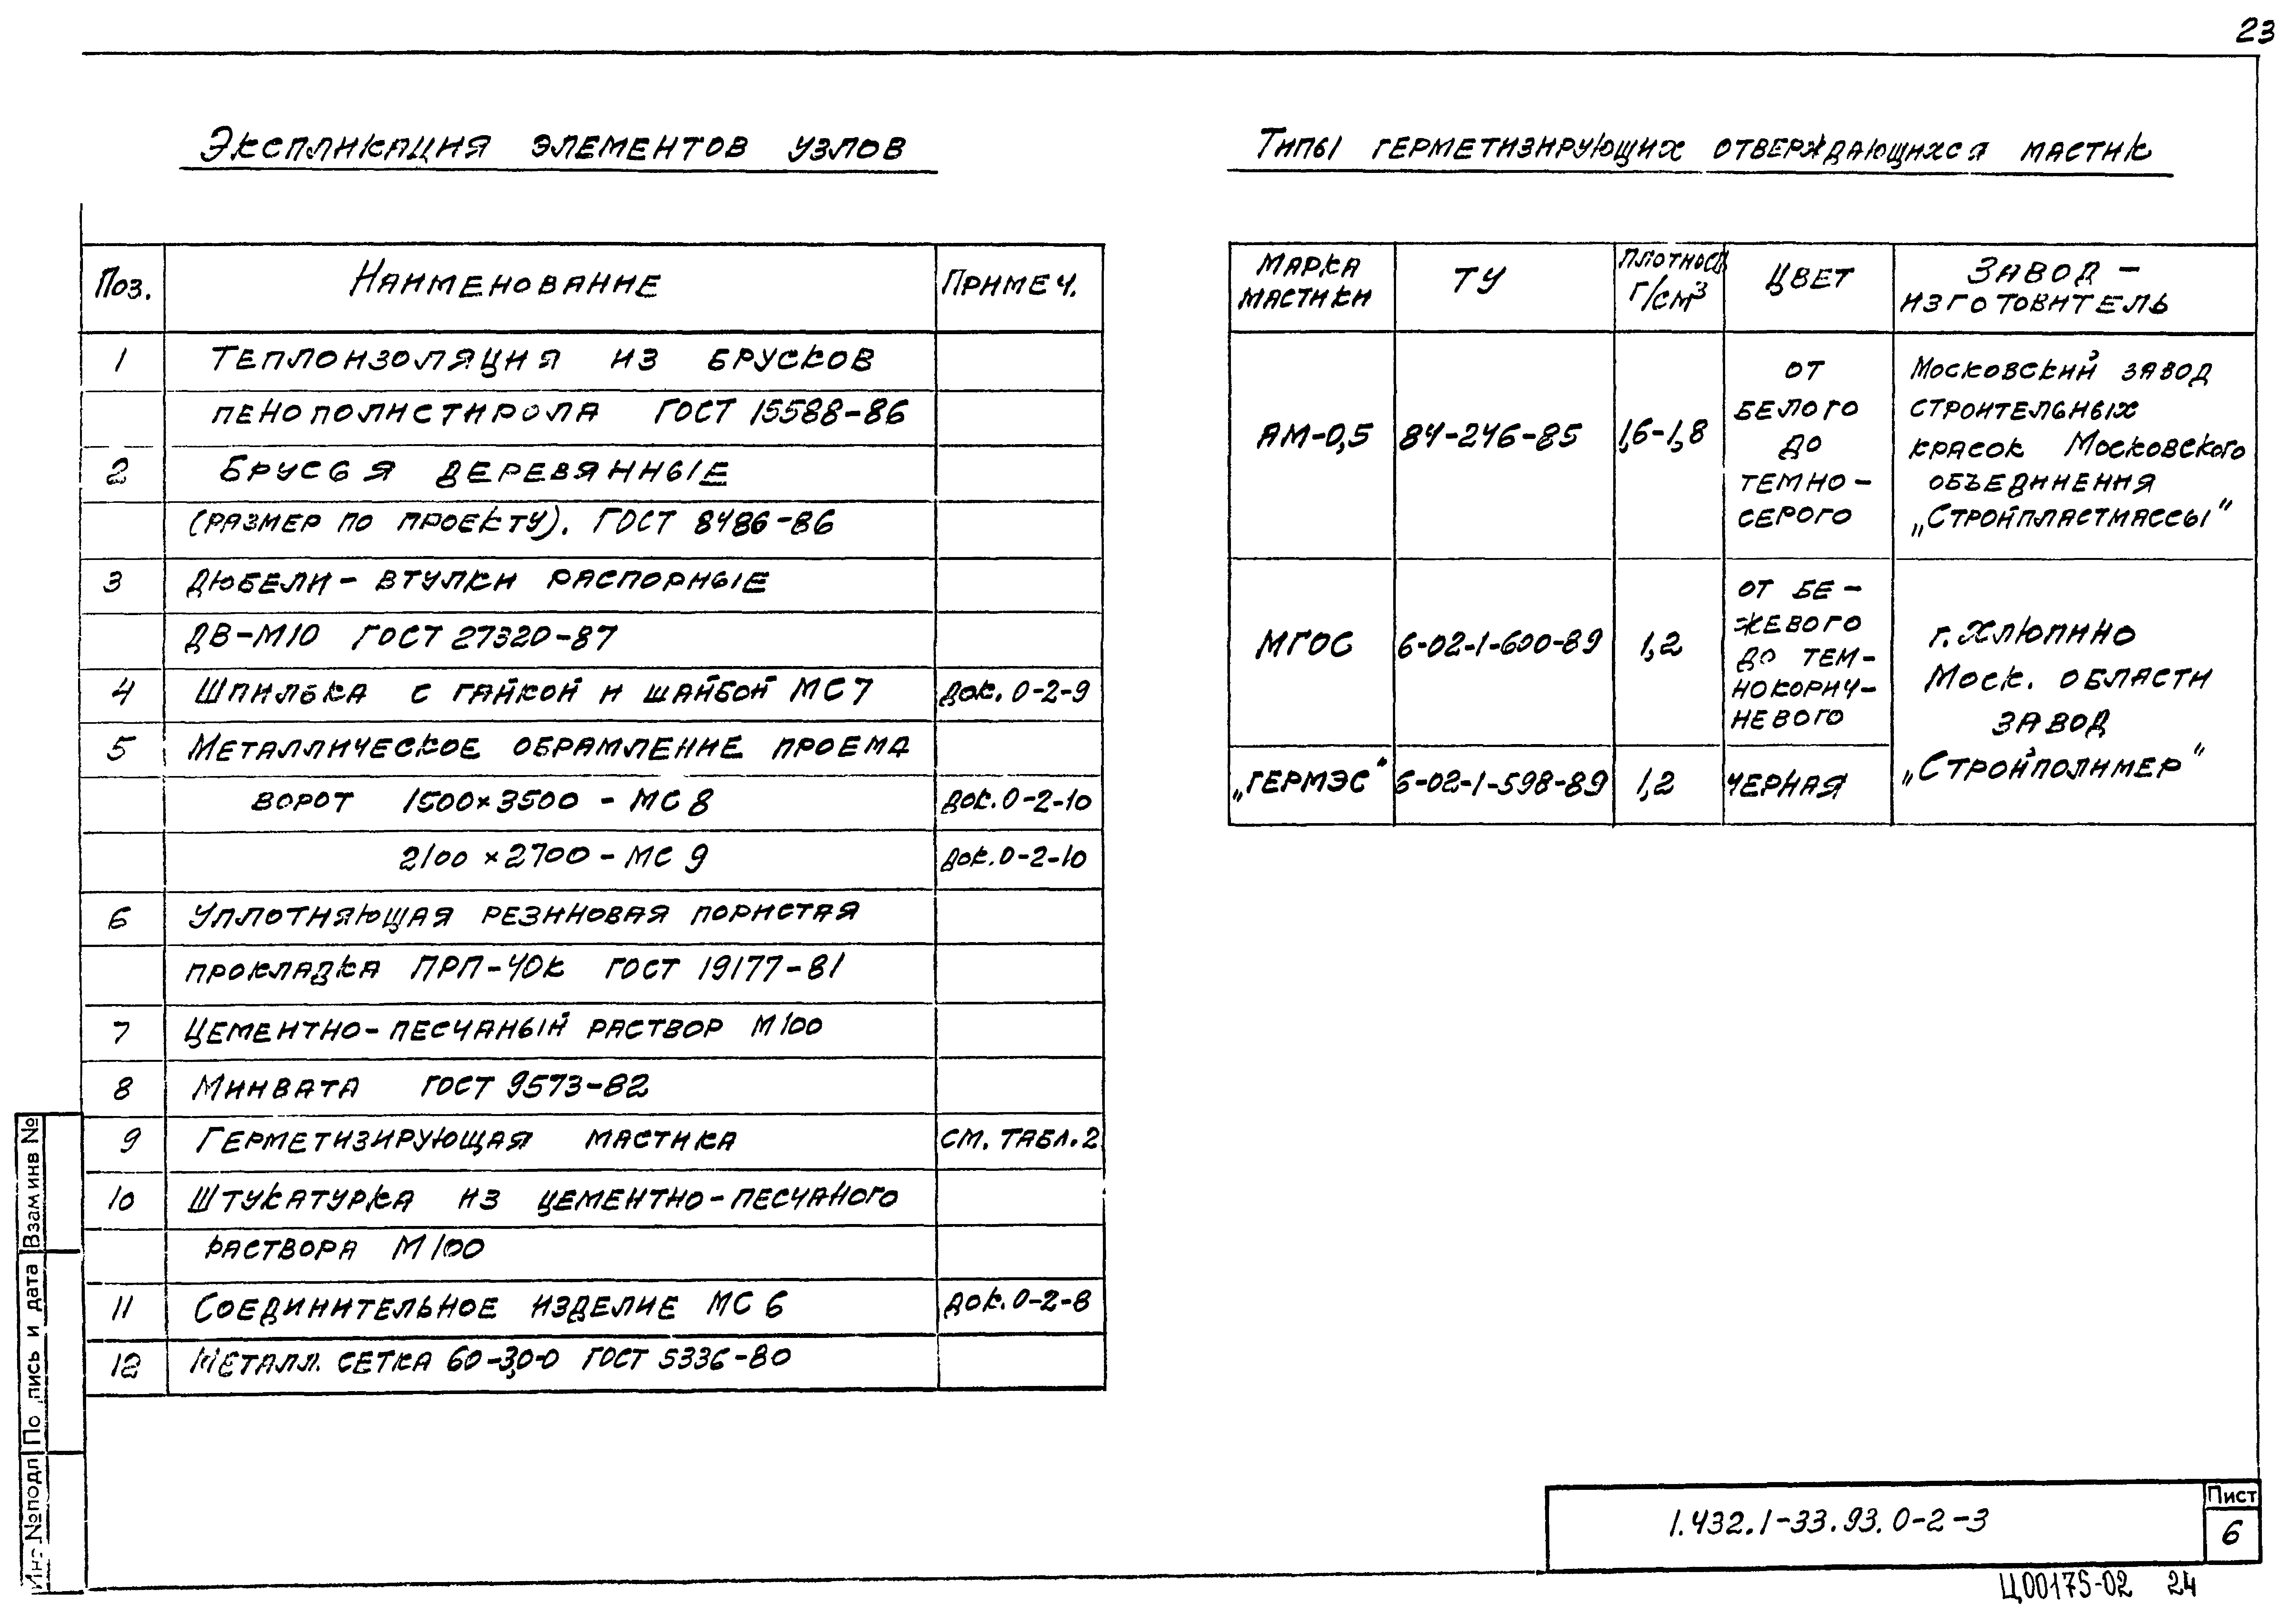 23
Экспликация элементов узлов
Поз. Наименование Примеч.
1 Теплоизоляция из брусков
пенополистирола ГОСТ 15588-86
2 Брусья деревянные
(размер по проекту). ГОСТ 8486-86
3 Дюбели-втулки распорные
ДВ-М10 ГОСТ 27320-87
4 Шпилька с гайкой и шайбой МС7 док. 0-2-9
5 Металлическое обрамление проема
ворот 1500×3500 - МС8 док. 0-2-10
2100×2700 - МС9 док. 0-2-10
6 Уплотняющая резиновая пористая
прокладка ПРП-40К ГОСТ 19177-81
7 Цементно-песчаный раствор М100
8 Минвата ГОСТ 9573-82
9 Герметизирующая мастика см. табл. 2
10 Штукатурка из цементно-песчаного
раствора М100
11 Соединительное изделие МС6 док. 0-2-8
12 Металл. сетка 60-3,0-0 ГОСТ 5336-80
Типы герметизирующих отверждающихся мастик
Марка
мастики
ТУ
плотность
г/см³
Цвет
Завод-
изготовитель
АМ-0,5
84-246-85
1,6-1,8
от
белого
до
темно-
серого
Московский завод
строительных
красок Московского
объединения
„Стройпластмассы"
МГОС
6-02-1-600-89
1,2
от бе-
жевого
до тем-
нокорич-
невого
г. Хлюпино
Моск. области
завод
„Стройполимер"
„Гермэс"
6-02-1-598-89
1,2
черная
Взам инв №
По пись и дата
Инв № подл
1.432.1-33.93.0-2-3
Лист
6
Ц00175-02 24